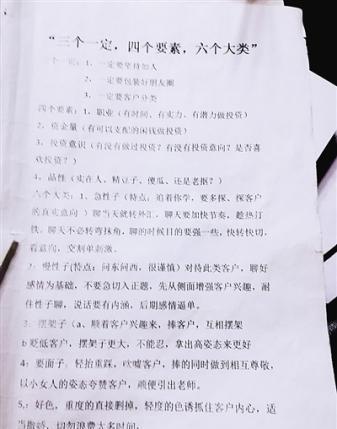 “三个一定，四个要素，六个大类”
三个一定：1、一定要坚持加人
2、一定要包装好朋友圈
3、一定要客户分类
四个要素：1、职业（有时间、有实力、有潜力做投资）
2、资金量（有可以支配的闲钱做投资）
3、投资意识（有没有做过投资？有没有投资意向？是否喜
欢投资？）
4、品性（实在人、精豆子、傻瓜、还是老抠？）
六个大类：1、急性子（特点：追着你学，要多探、探客户
的真实意向）聊当天就转外汇，聊天要加快节奏，趁热打
铁。聊天不必转弯抹角，聊的时候目的要强一些，快转快切，
看意向，交割单刺激。
2、慢性子（特点：问东问西，很谨慎）对待此类客户，聊好
感情为基础，不要急切入正题，先从侧面增强客户兴趣，耐
住性子聊，说话要有内涵，后期感情逼单。
3、摆架子（a、顺着客户兴趣来，捧客户，互相摆架
b 要低客户，摆架子更大，不能忍，拿出高姿态来更好
4：要面子：轻抬重踩，吹嘘客户，捧的同时做到相互尊敬，
以小女人的姿态夸赞客户，顺便引出老师。
5,：好色，重度的直接删掉，轻度的色诱抓住客户内心，适
当撒娇，切勿浪费太多时间。